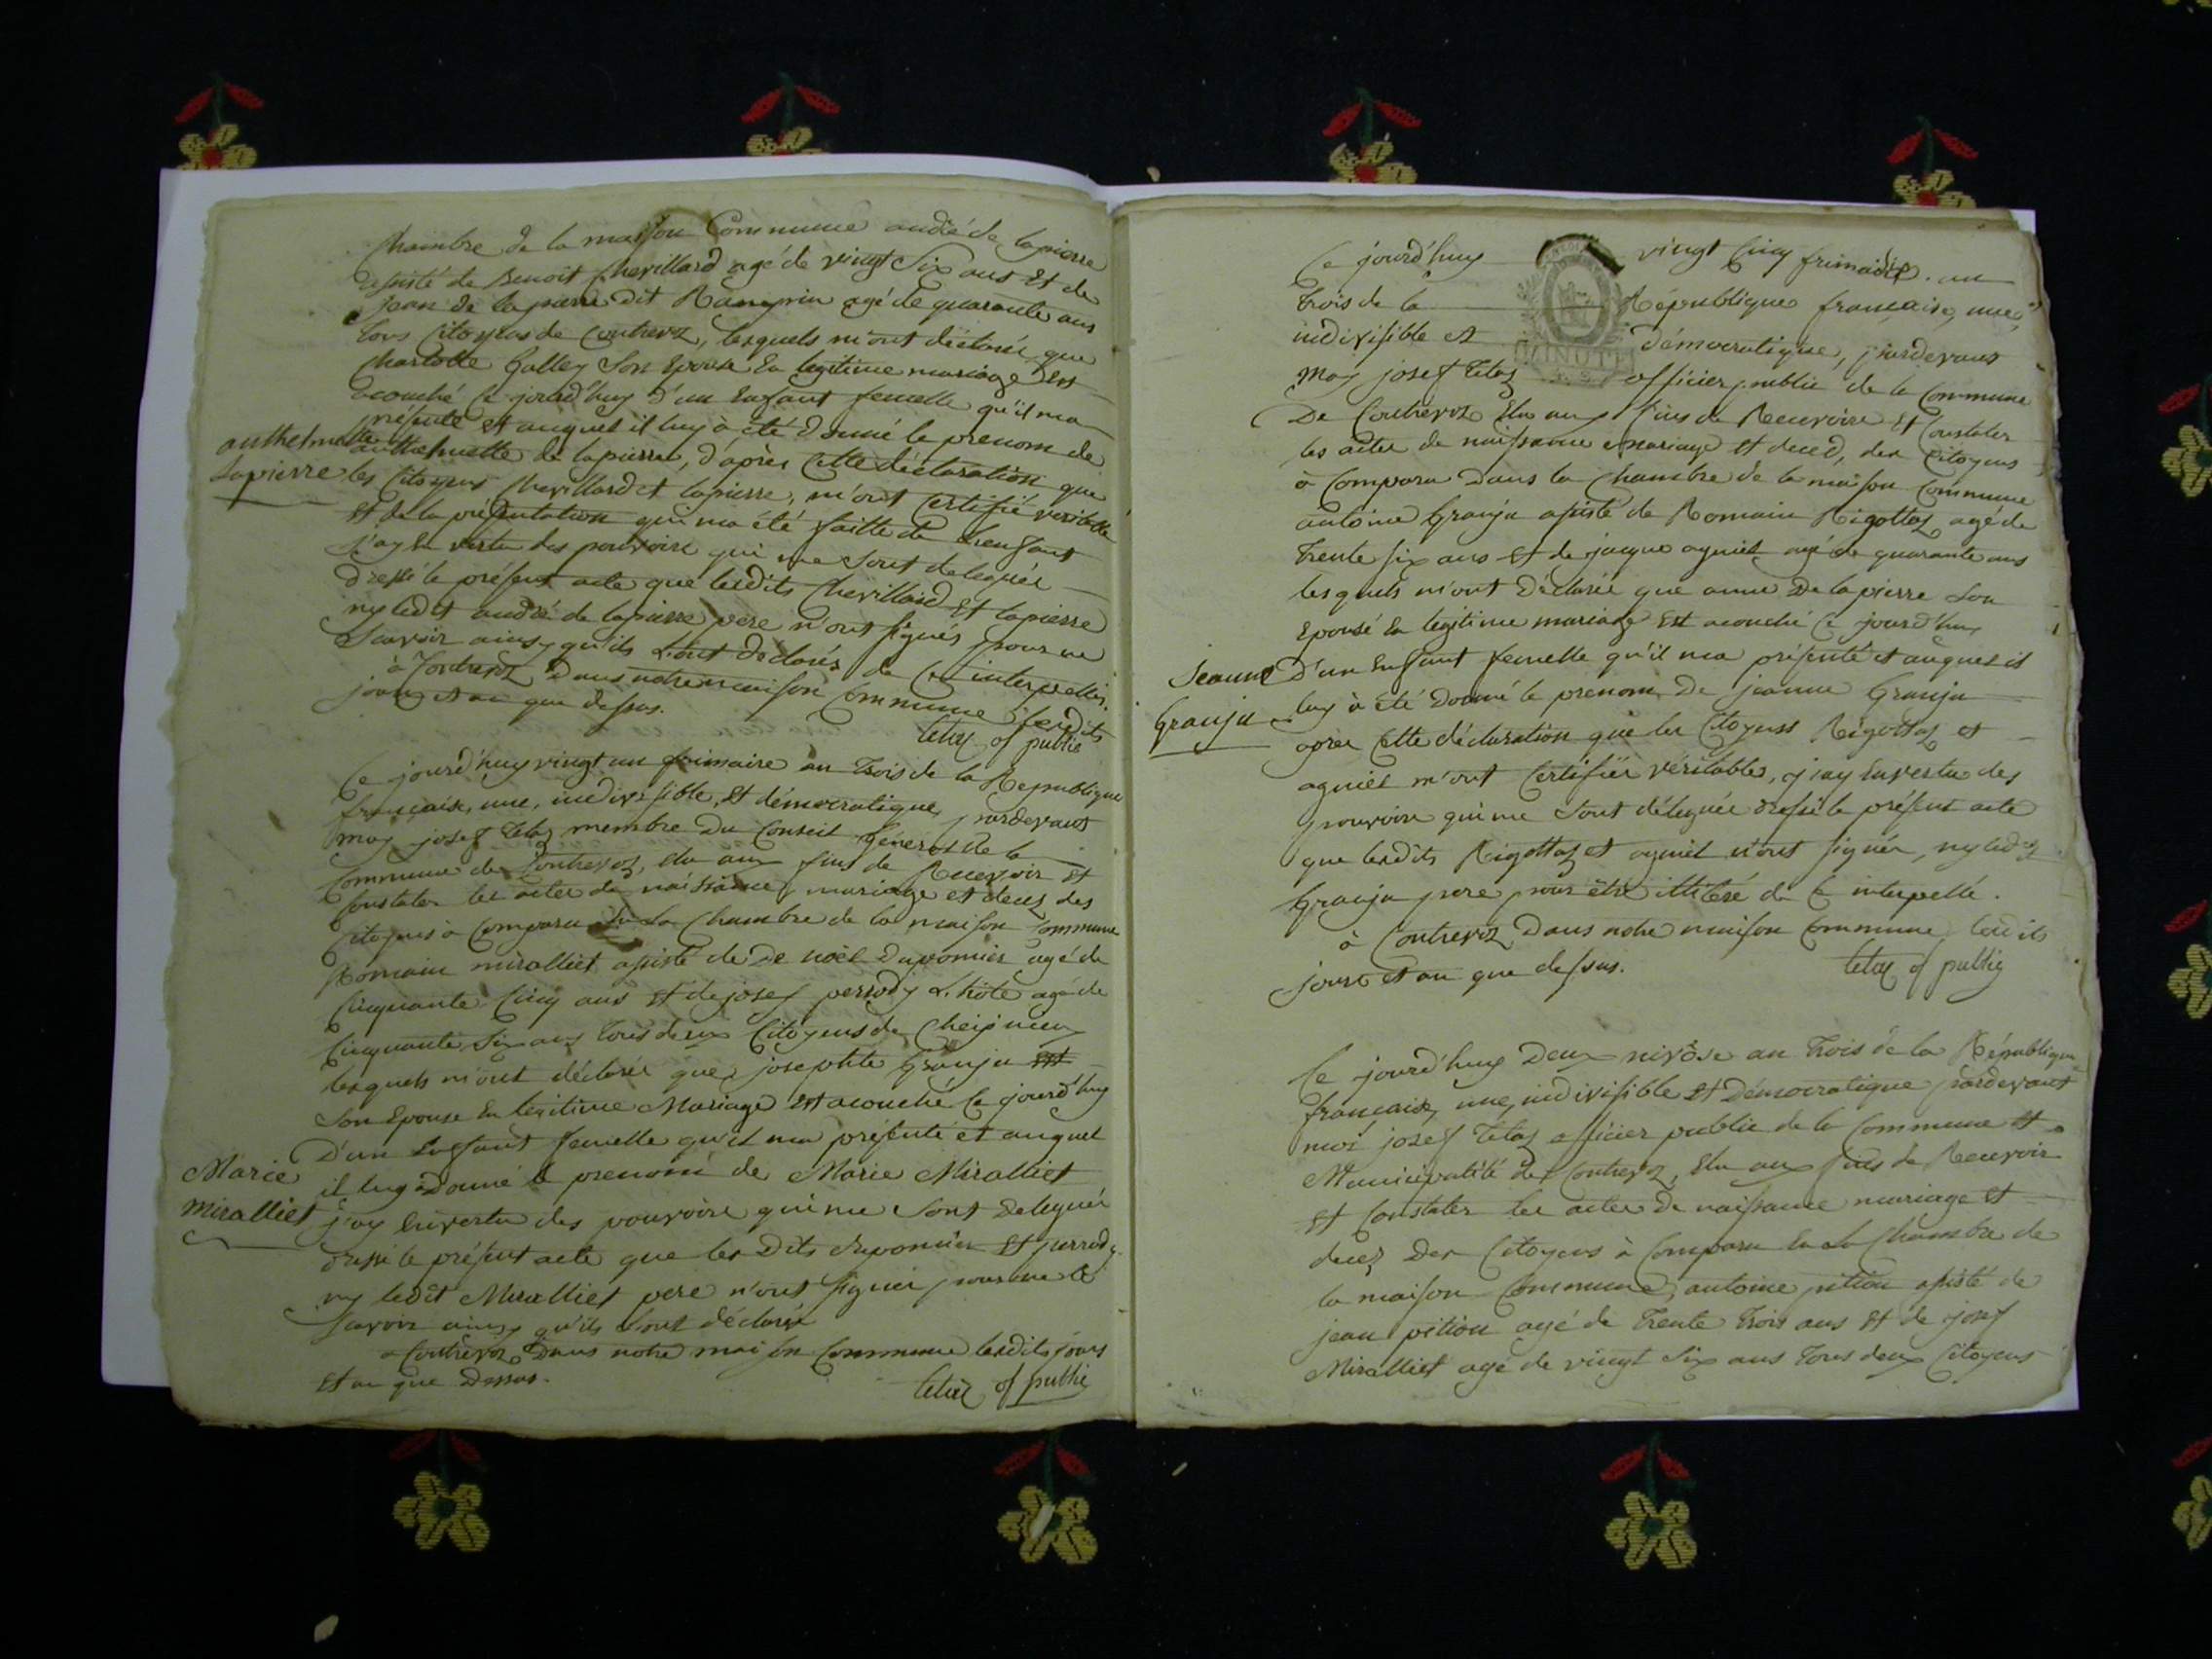 Chambre de la maison Commune andré de lapierre
asisté de Benoit Chevillard agé de vingt Six ans Et de
jean de lapierre dit agé de quarante ans
tous Citoyens de Contrevoz, lesquels m'ont déclarée que
Charlotte Galley Son Epouse En legitime mariage Est
acouché Ce jourd'huy d'un Enfant femelle qu'il ma
présenté Et auquel il luy à été donné le prenom de
anthelmette
anthelmette de lapierre, d'après Cette déclaration que
Lapierre
les Citoyens Chevillard et lapierre, m'ont Certifié veritable
Et de la présentation qui ma été faitte de L'enfant
j'ay En vertu des pouvoirs qui me Sont deleguée
dressé le présent acte que lesdits Chevillard Et lapierre
ny ledit andré de lapierre père n'ont signés pour ne
Scavoir ainsy qu'ils L'ont declarés de Ce interpellés.
à Contrevoz Dans notre maison Commune lesdits
jours et an que dessus.
tetaz of public
Ce jourd'huy vingt un frimaire an trois de la Republique
française, une, indivisible, Et démocratique, pardevant
moy josef tetaz membre du Conseil Général de la
Commune de Contrevoz, Elu aux fins de Recevoir Et
Constater les actes de naissance, mariage et decez des
Citoyens à Comparu En La Chambre de la maison Commune
Romain miralliet asisté de De noël Duponnier agé de
Cinquante Cinq ans Et de josef perrody L'hote agé de
Cinquante Six ans tous deux Citoyens de Cheignieu
lesquels m'ont déclarée que josephte Granju Est
Son Epouse En légitime Mariage Est acouché Ce jourd'huy
D'un Enfant femelle qu'il ma présenté et auquel
Marie
il luy à Donné le prenom de Marie Miralliet
Miralliet
j'ay En vertu des pouvoirs qui me Sont Deleguée
dressé le présent acte que les Dits Duponnier Et perrody
ny ledit Miralliet pere n'ont Signer pour ne le
Scavoir ainsy qu'ils L'ont déclarés
à Contrevoz Dans notre maison Commune lesdits jours
Et an que Dessus.
tetaz of public
Ce jourd'huy vingt Cinq frimaire. an
trois de la République française, une,
indivisible et démocratique, pardevant
MINUTE
moy josef tetaz officier public de la Commune
De Contrevoz Elu aux fins de Recevoire Et Constater
les actes de naissance mariage Et deced, des Citoyens
à Comparu Dans la Chambre de la maison Commune
antoine Granju asisté de Romain Rigottaz agé de
trente six ans Et de jacque agniel agé de quarante ans
lesquels m'ont Déclarée que anne De lapierre Son
Epousé En legitime mariage Est acouché Ce jourd'huy
Jeanne
D'un Enfant femelle qu'il ma présenté et auquel il
Granju
luy à été Donné le prenom De jeanne Granju
apres Cette déclaration que les Citoyens Rigottaz et
agniel m'ont Certifiér véritables, j'ay En vertu des
pouvoirs qui me Sont déléguée dressé le présent acte
que lesdits Rigottaz et agniel n'ont signér, ny ledit
Granju pere pour être illitéré de Ce interpellé.
à Contrevoz Dans notre maison Commune lesdits
jours et an que dessus. tetaz of public
Ce jourd'huy Deux nivôse an trois de la République
française, une, indivisible Et Démocratique pardevant
moi josef tetaz officier public de la Commune Et
Municipalité de Contrevoz, Elu aux fins de Recevoir
Et Constater les actes De naissance mariage Et
decez Des Citoyens à Comparu En La Chambre de
la maison Commune, antoine pition asisté de
jean pition agé de trente trois ans Et de josef
Miralliet agé de vingt Six ans tous deux Citoyens